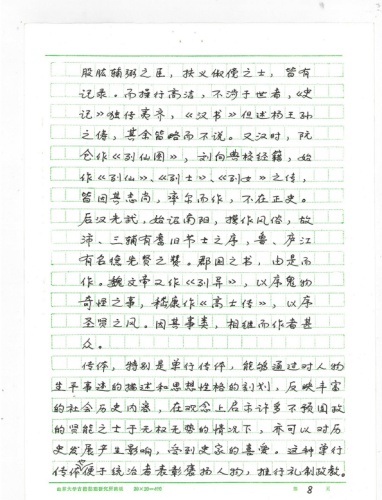 股肱辅弼之臣，扶义俶傥之士，皆有
记录。而操行高洁，不涉于世者，《史
记》独传夷齐，《汉书》但述杨王孙
之俦，其余皆略而不说。又汉时，阮
仓作《列仙图》，刘向典校经籍，始
作《列仙》、《列士》、《列女》之传，
皆因其志尚，率尔而作，不在正史。
后汉光武，始诏南阳，撰作风俗，故
沛、三辅有耆旧节士之序，鲁、庐江
有名德先贤之赞。郡国之书，由是而
作。魏文帝又作《列异》，以序鬼物
奇怪之事，嵇康作《高士传》，以序
圣贤之风。因其事类，相继而作者甚
众。
传体，特别是单行传体，能够通过对人物
生平事迹的描述和思想性格的刻划，反映丰富
的社会历史内容，在观念上启示许多不预国政
的贤能之士于无权无势的情况下，亦可以对历
史发展产生影响，受到史家的喜爱。这种单行
传体便于统治者表彰褒扬人物，推行礼制政教。
20×20=400
第 8 页